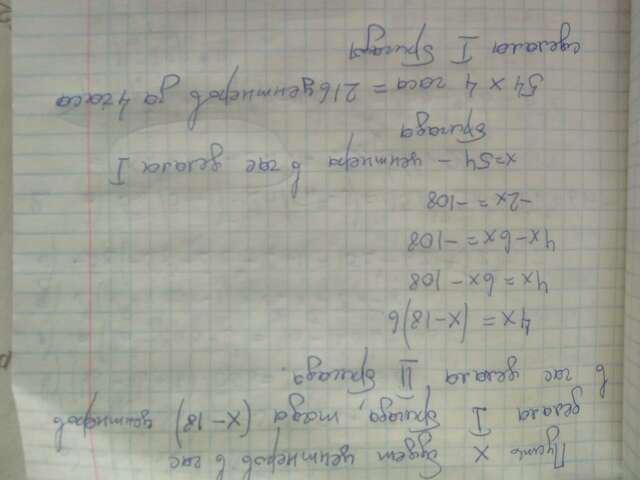 Пусть x будет центнеров в час
делала I бригада, тогда (x-18) центнеров
в час делала II бригада.
4x = (x-18)6
4x = 6x - 108
4x-6x = -108
-2x = -108
x=54 - центнера в час делала I
бригада
54 x 4 часа = 216 центнеров за 4 часа
сделала I бригада